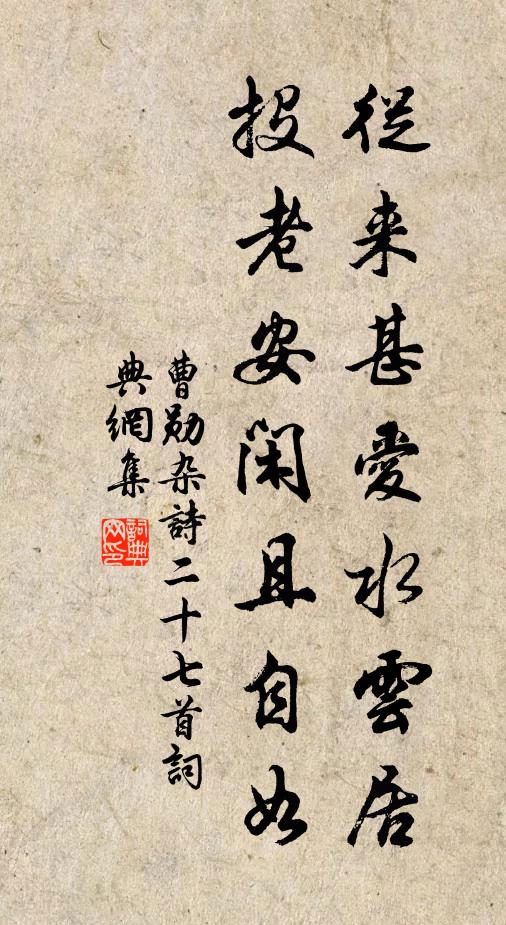 從来甚愛水雲居
投老安閑且自如
曹勛杂詩二十七首詞
典網集
詞典
网印